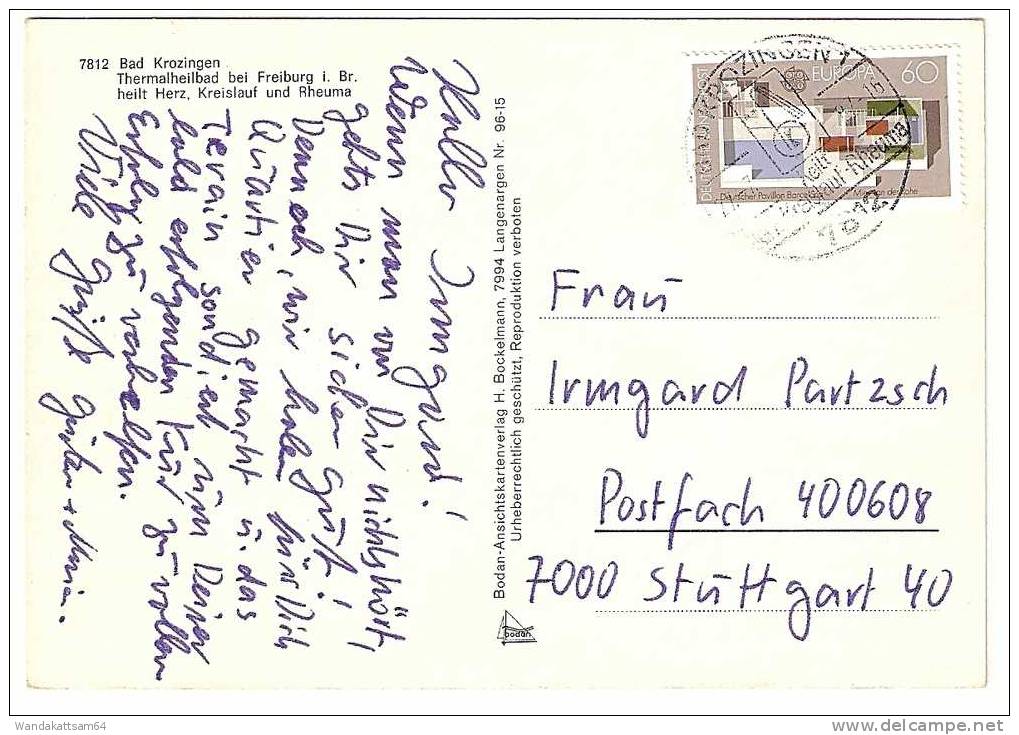 7812 Bad Krozingen
Thermalheilbad bei Freiburg i. Br.
heilt Herz, Kreislauf und Rheuma
Hallo Irmgard!
Wenn man von Dir nichts hört,
gehts Dir sicher gut!
Dennoch, wir haben für Dich
Quartier gemacht u. das
Terain sondiert um Deiner
bald erfolgenden Kur zu vollem
Erfolg zu verhelfen.
Viele Grüße Gustav + Maria.
Bodan-Ansichtskartenverlag H. Bockelmann, 7994 Langenargen Nr. 96-15
Urheberrechtlich geschützt, Reproduktion verboten
bodan
DEUTSCHE BUNDESPOST
EUROPA 60
Deutscher Pavillon Barcelona
Mies van der Rohe
BAD KROZINGEN 1
heilt
Kreislauf-Rheuma
7812
Frau
Irmgard Partzsch
Postfach 400608
7000 Stuttgart 40
Wandakattsam64
www.delcampe.net